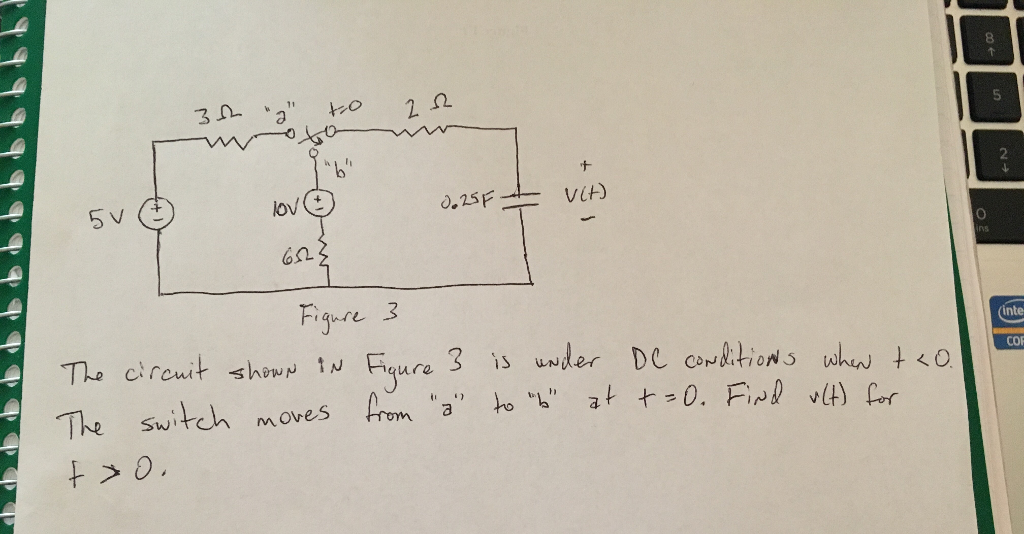 3 Ω "a" t=0 2 Ω
"b"
5 V
+
-
10V
+
-
0.25F
+
v(t)
-
6Ω
Figure 3
The circuit shown in Figure 3 is under DC conditions when t < 0.
The switch moves from "a" to "b" at t = 0. Find v(t) for
t > 0.
8
↑
5
2
↓
0
ins
inte
COR